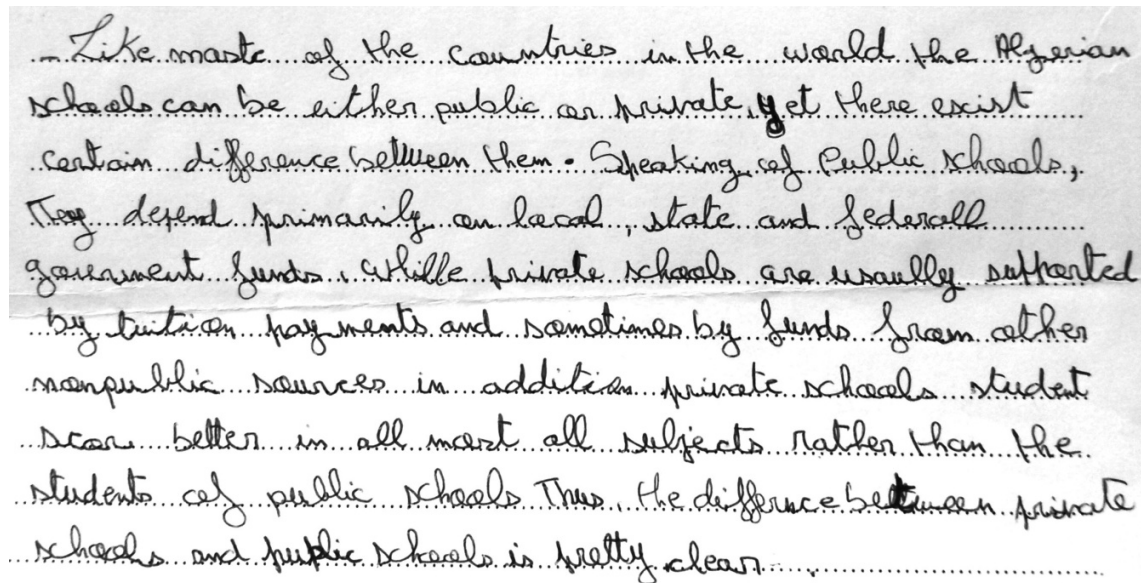 - Like maste of the countries in the world the Algerian
schools can be either public or private, yet there exist
certain difference between them. Speaking of Public schools,
They depend primarily on local, state and federall
goverment funds. Whille private schools are usaully supported
by tuition payments and sometimes by funds from other
nonpublic sources in addition private schools student
score better in all most all subjects rather than the
students of public schools Thus, the differnce between private
schools and public schools is pretty clear.